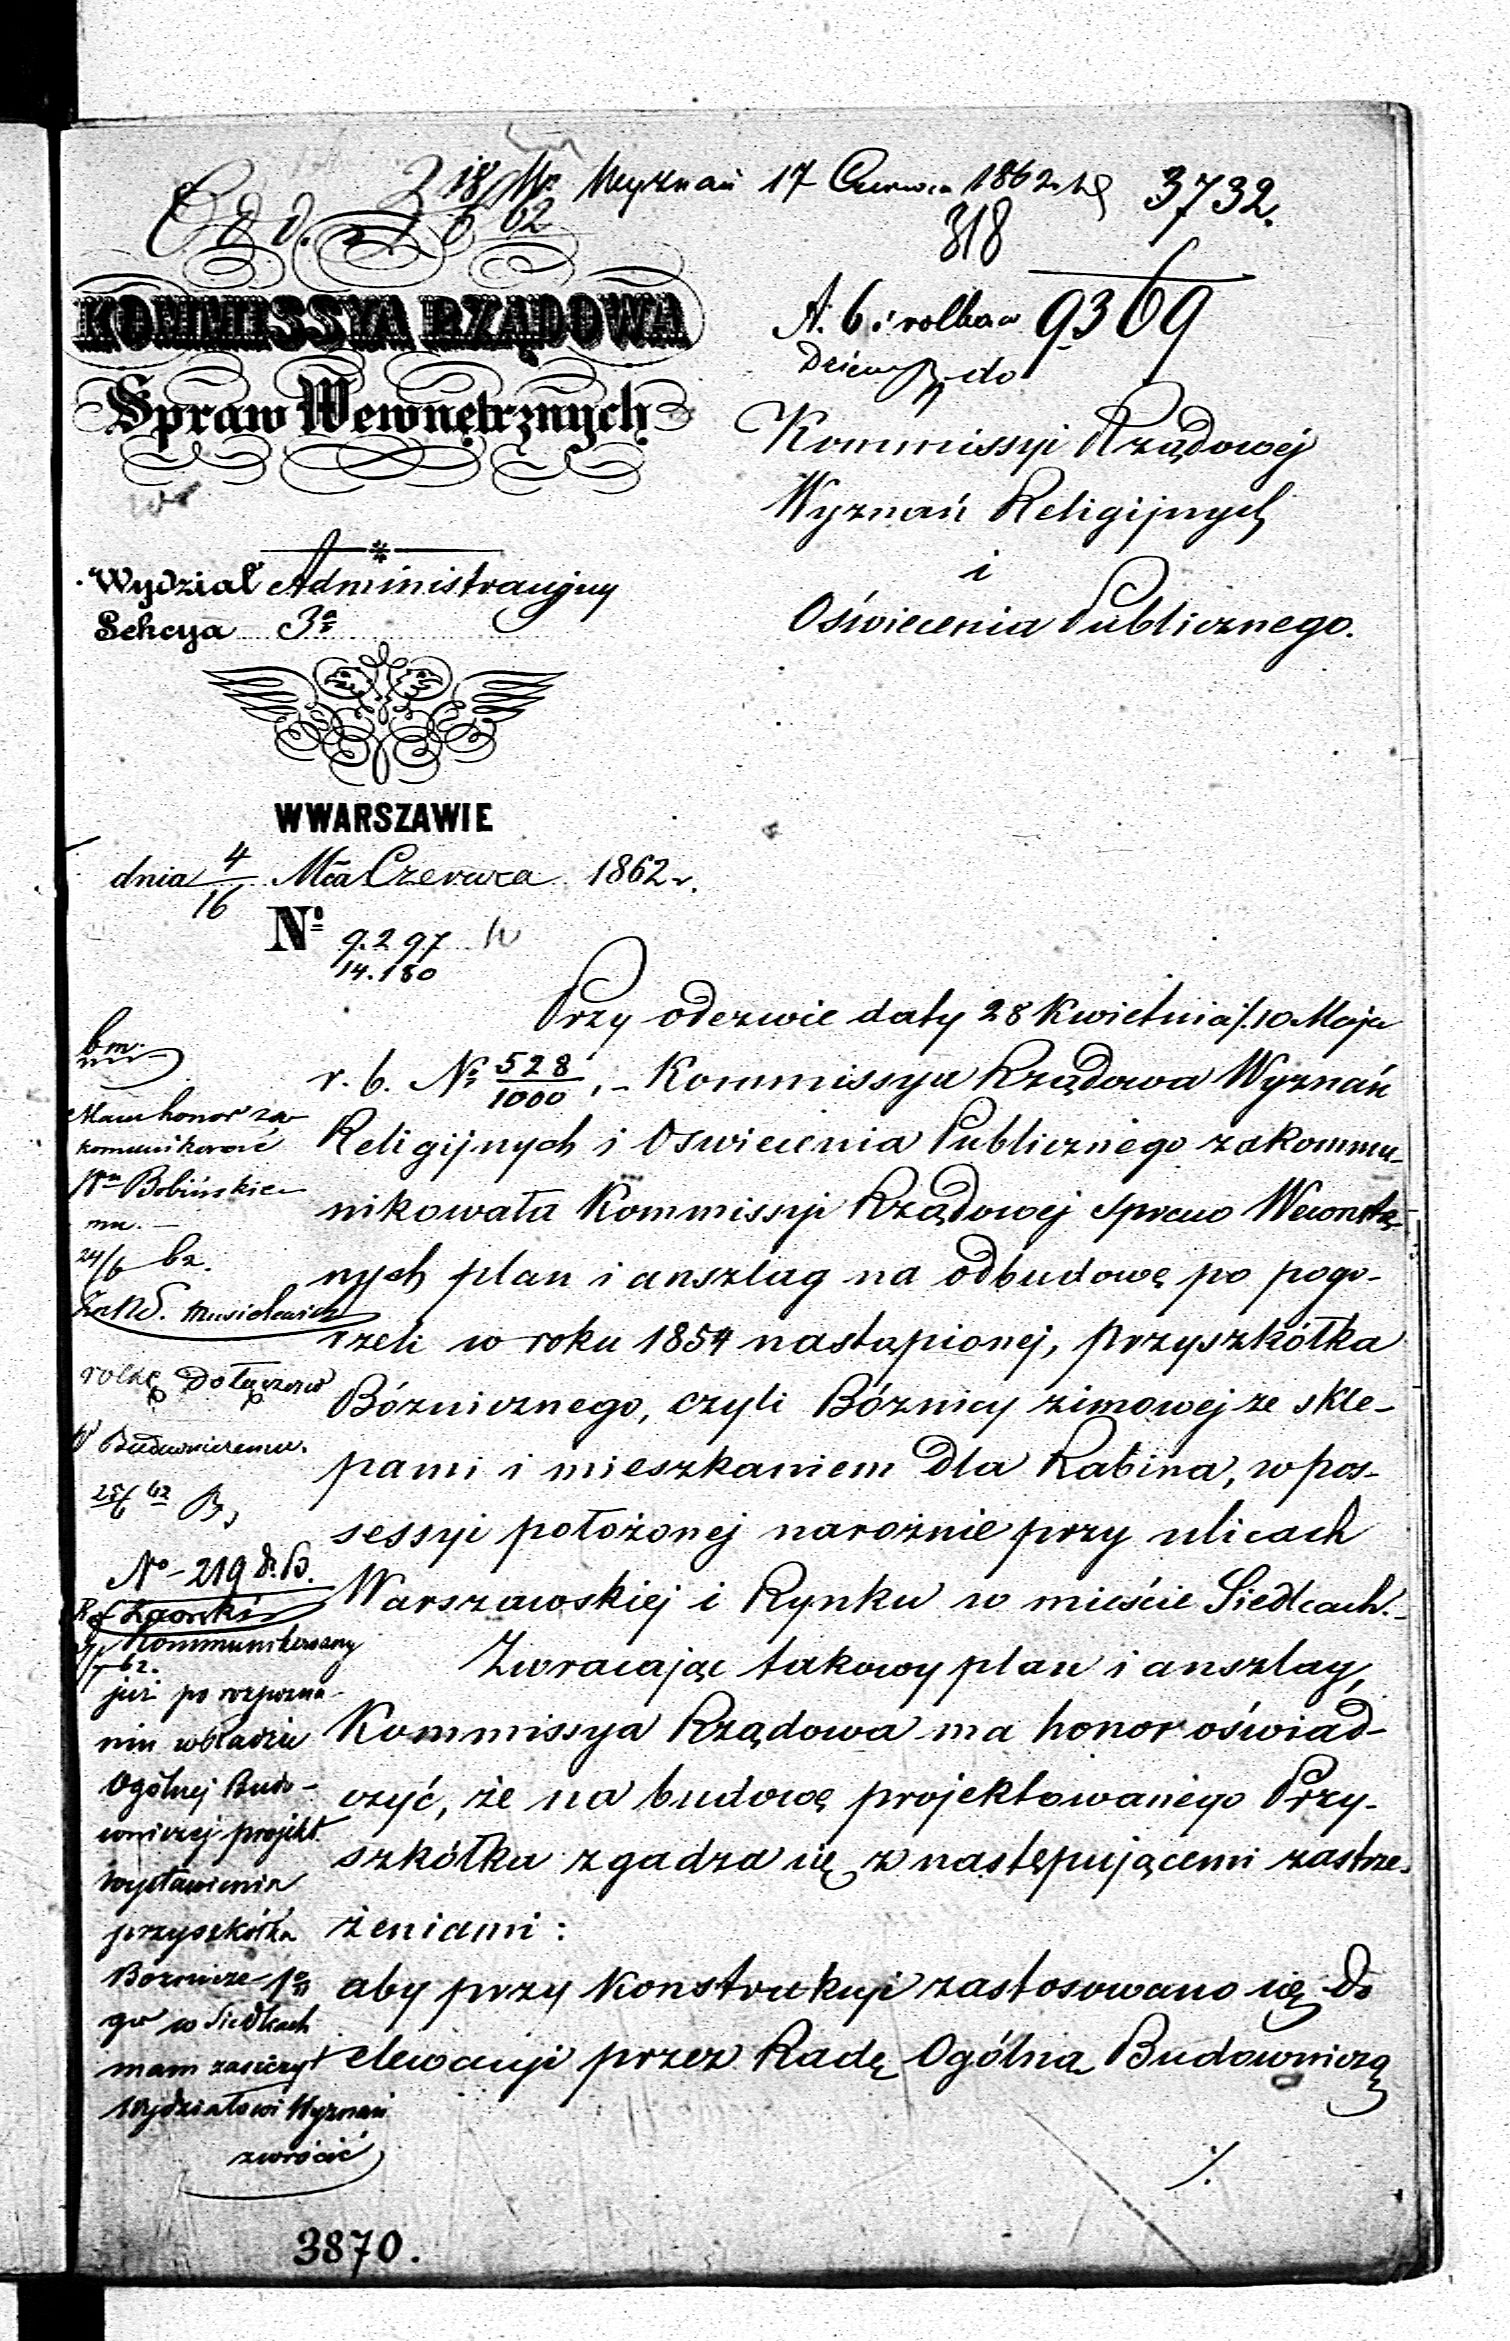 Odd. 3 18/6 62 Wyznań 17 Czerwca 1862 3732.
318
KOMMISSYA RZĄDOWA
Spraw Wewnętrznych
A. 6 i rolka 9369
do
Kommissyi Rządowéj
Wyznań Religijnych
i
Oświecenia Publicznego.
Wydział Administracyjny
Sekcya 3a
W WARSZAWIE
dnia 4/16 Mca Czerwca 1862 r.
No 9.297
14.180
Przy odezwie daty 28 Kwietnia /. 10 Maja
r. b. No 528/1000, - Kommissya Rządowa Wyznań
Religijnych i Oswiecenia Publicznego zakommu-
nikowała Kommissyi Rządowej Spraw Wewnętrz-
nych plan i anszlag na odbudowę po pogo-
rzeli w roku 1854 nastąpionej, Przyszkółka
Bóżnicznego, czyli Bóżnicy zimowej ze skle-
pami i mieszkaniem dla Rabina, w pos-
sessyi położonej narożnie przy ulicach
Warszawskiej i Rynku w mieście Siedlcach.-
Zwracając takowy plan i anszlag,
Kommissya Rządowa ma honor oświad-
czyć, że na budowę projektowanego Przy-
szkółka zgadza się z następującemi zastrze-
żeniami:
aby przy Konstrukcyi zastosowano się do
elewacyi przez Radę Ogólną Budowniczą
./.
bm.
Mam honor za-
komunikować
Wu Bobińskie-
mu. -
24/6 62.
rolkę dołączono
W Budowniczemu.
25/6 62
No - 219 d. B.
Kommunikowany
już po rozpozna-
niu w Radzie
Ogólnej Budo-
wniczej projekt
wystawienia
przyszkółka
Bożnicze-
go w Siedlcach
mam zaszczyt
Wydziałowi Wyznań
zwrócić
3870.